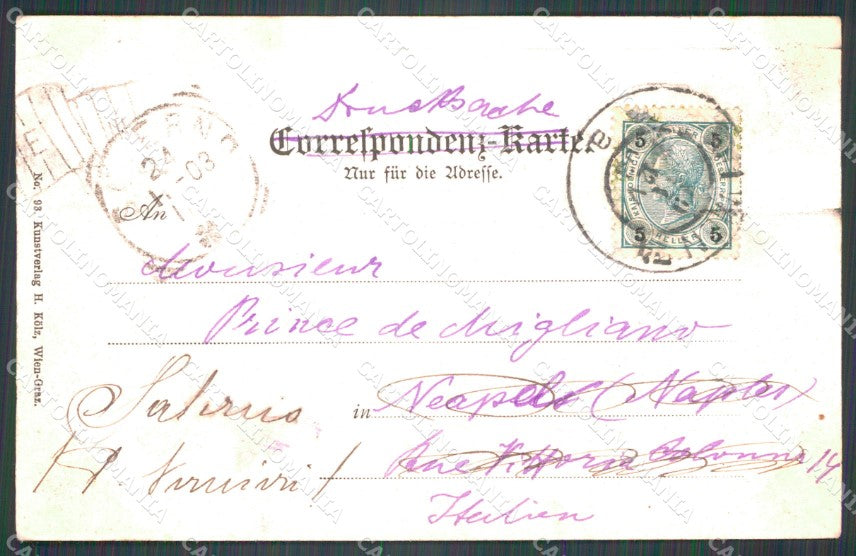 Drucksache
Correspondenz-Karte.
Nur für die Adresse.
SALERNO
24
03
5 5
5 HELLER 5
An
Monsieur
Prince de Migliano
Salerno
in Neapel (Naples)
Rue Vittoria Colonna 14
Italien
No. 93 Kunstverlag H. Kölz, Wien-Graz.
CARTOLINOMANIA